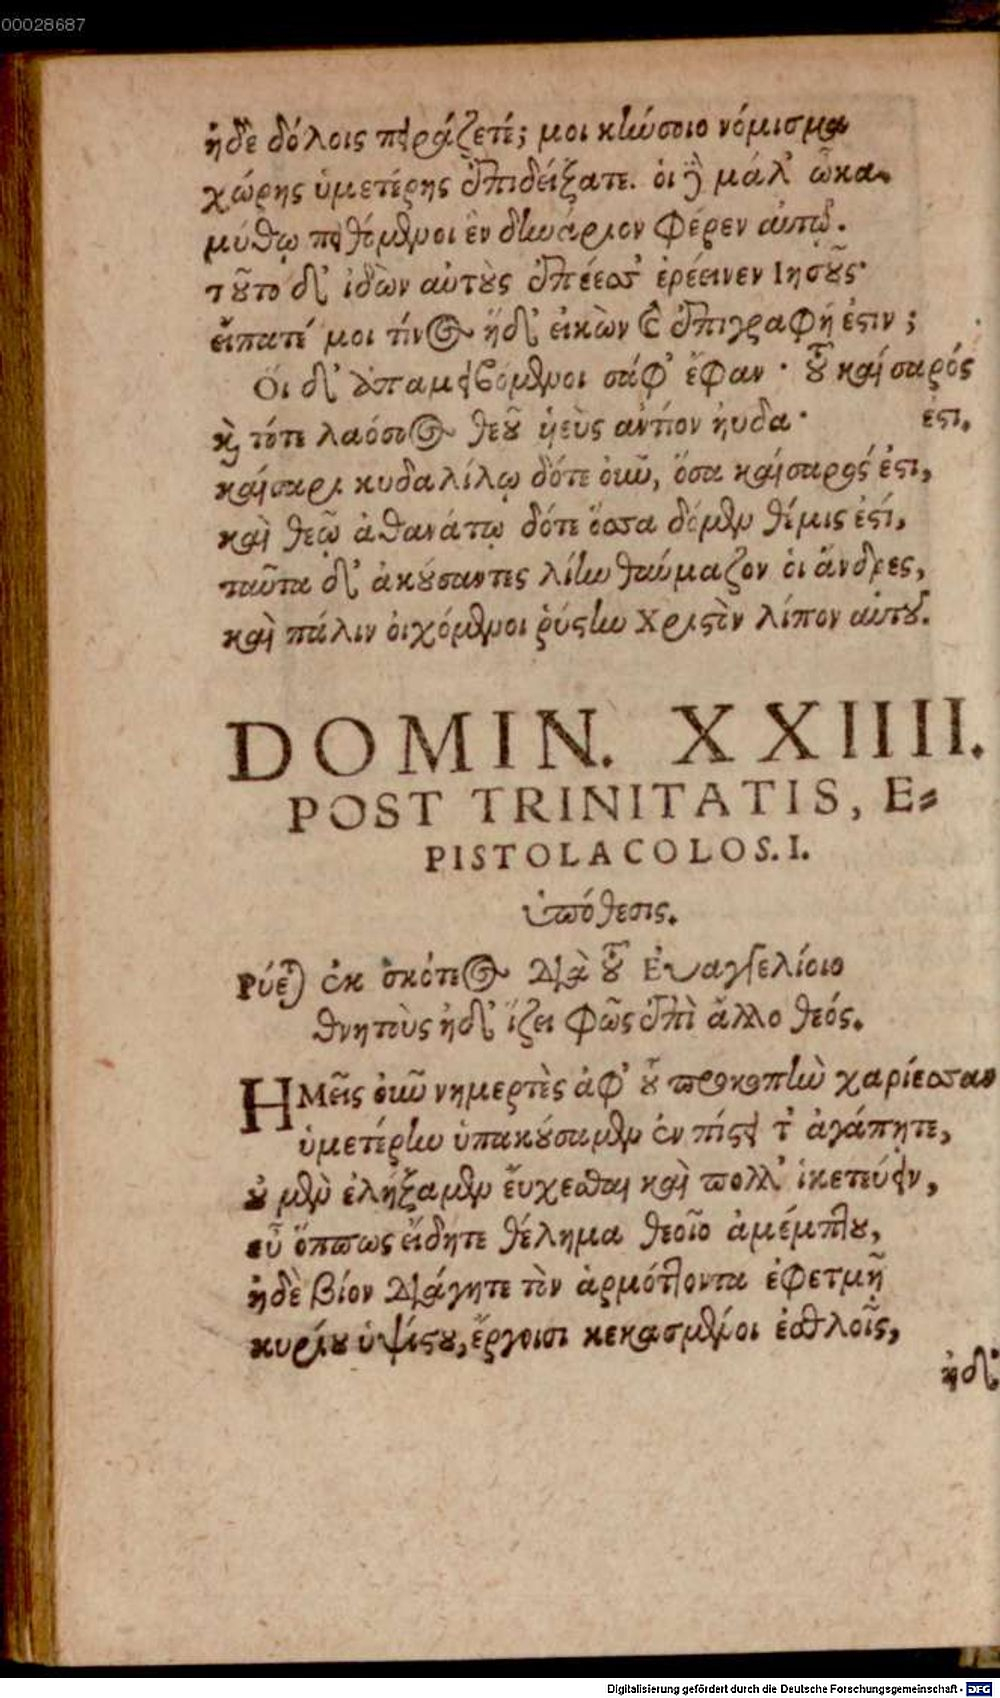 00028687
ἠδὲ δόλοις πειράζετέ; μοι κήνσοιο νόμισμα
χώρης ὑμετέρης ἐπιδείξατε. οἱ γὰρ μάλ' ὦκα
μύθῳ πειθόμενοι ἓν δηνάριον φέρεν αὐτῷ.
τοῦτο δ' ἰδὼν αὐτοὺς ἐπέεσσ' ἐρέεινεν Ιησοῦς·
εἴπατέ μοι τίνος ἥδ' εἰκὼν καὶ ἐπιγραφή ἐστιν;
Οἱ δ' ἀπαμειβόμενοι σάφ' ἔφαν· τοῦ καίσαρός
ἐστι.
καὶ τότε λαόσσος θεοῦ υἱεὺς ἀντίον ηὔδα·
καίσαρι κυδαλίμῳ δότε οὖν, ὅσα καίσαρός ἐστι,
καὶ θεῷ ἀθανάτῳ δότε ὅσσα δόμεν θέμις ἐστί,
ταῦτα δ' ἀκούσαντες λίην θαύμαζον οἱ ἄνδρες,
καὶ πάλιν οἰχόμενοι ῥύστην Χριστὸν λίπον αὐτοῦ.
DOMIN. XXIIII.
POST TRINITATIS, E⸗
PISTOLA COLOS. I.
ὑπόθεσις.
Ρύεται ἐκ σκότεος διὰ τοῦ Εὐαγγελίοιο
θνητοὺς ἠδ' ἵζει φῶς ἐπὶ ἄλλο θεός.
ΗΜεῖς οὖν νημερτὲς ἀφ' οὗ προκοπὴν χαρίεσσαν
ὑμετέρην ὑπακούσαμεν ἐν πίστει τ' ἀγάπητε,
οὐ μὲν ἐλήξαμεν εὔχεσθαι καὶ πολλ' ἱκετεύειν,
εὖ ὅππως εἴδητε θέλημα θεοῖο ἀμέμπτου,
ἠδὲ βίον διάγητε τὸν ἁρμόττοντα ἐφετμῇ
κυρίου ὑψίστου, ἔργοισι κεκασμένοι ἐσθλοῖς,
ἠδ'
Digitalisierung gefördert durch die Deutsche Forschungsgemeinschaft - DFG